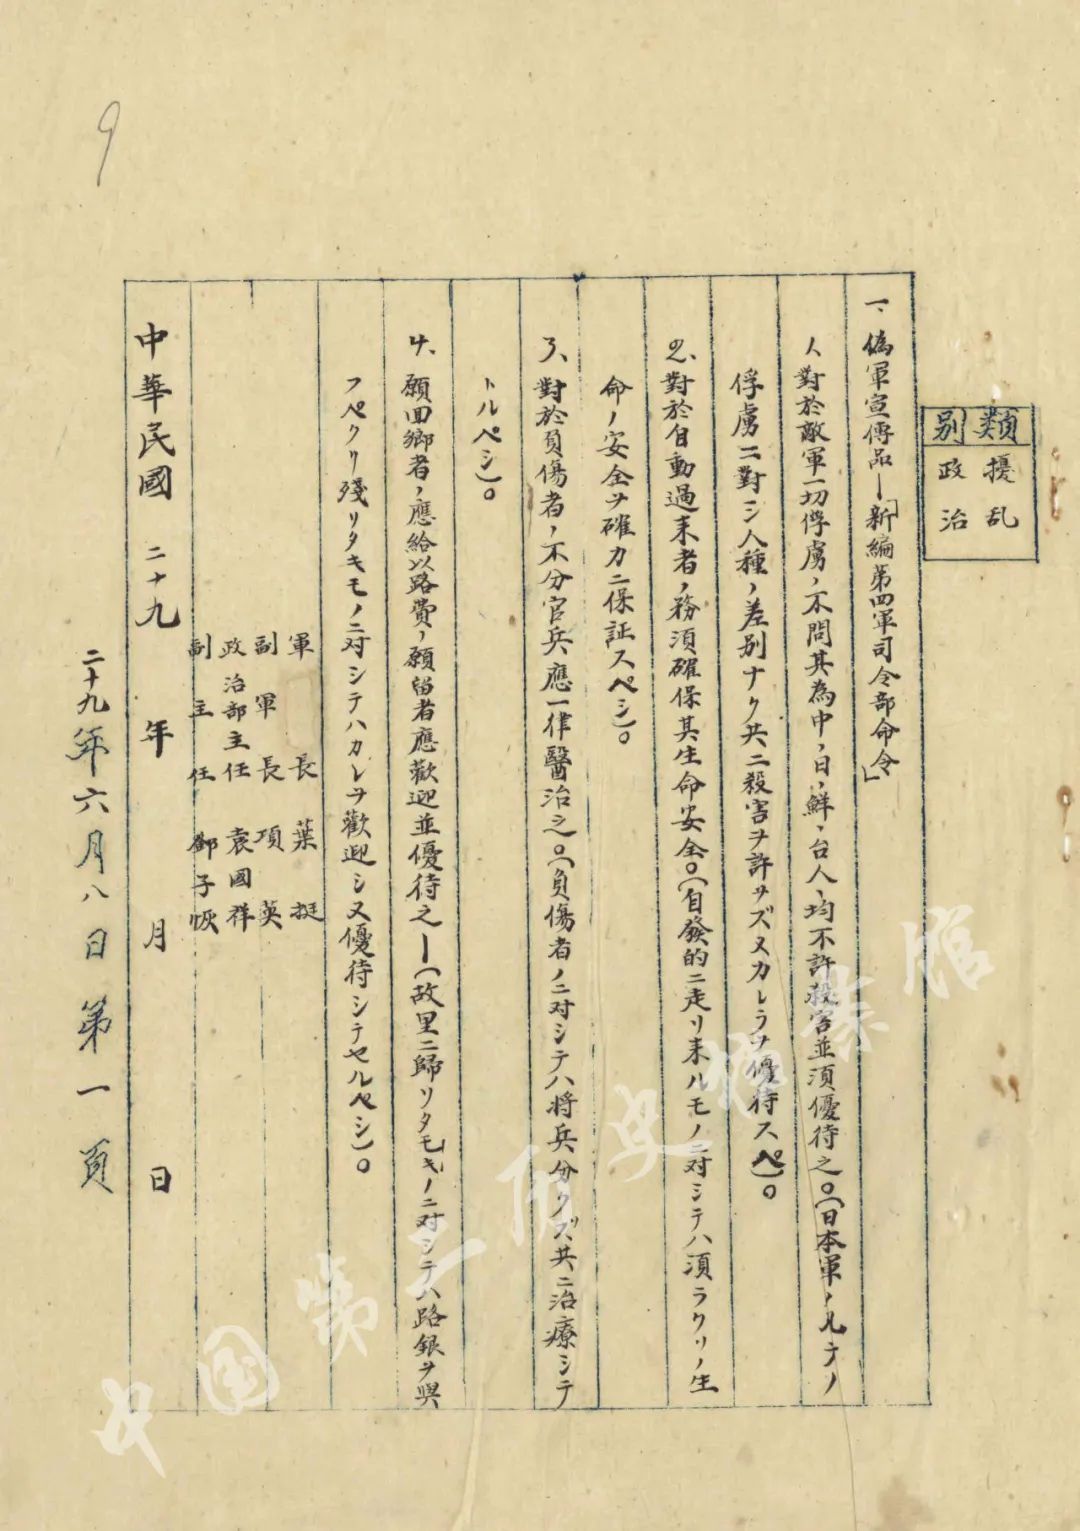 9
類別
擾乱
政治
一、偽軍宣傳品—「新編第四軍司令部命令」
1、對於敵軍一切俘虜，不問其為中，日，鮮，台人，均不許殺害並須優待之。（日本軍ノ凡テノ
俘虜ニ對シ人種ノ差別ナク共ニ殺害ヲ許サズ又カレラヲ優待スベシ）。
2、對於自動過来者，務須確保其生命安全。（自發的ニ走リ来ルモノニ対シテハ須ラクソノ生
命ノ安全ヲ確カニ保証スベシ）。
3、對於負傷者，不分官兵應一律醫治之。（負傷者ノニ対シテハ将兵分クズ共ニ治療シテ
トルペシ）。
4、願回鄉者，應給以路費，願留者應歡迎並優待之—（故里ニ歸リタキモノニ対シテハ路銀ヲ與
フペクリ殘リタキモノニ対シテハカレヲ歡迎シ又優待シテセルペシ）。
軍長 葉挺
副軍長 項英
政治部主任 袁國祥
副主任 鄧子恢
中華民國 二十九 年 月 日
二十九年六月八日第一頁
中国第二历史档案馆